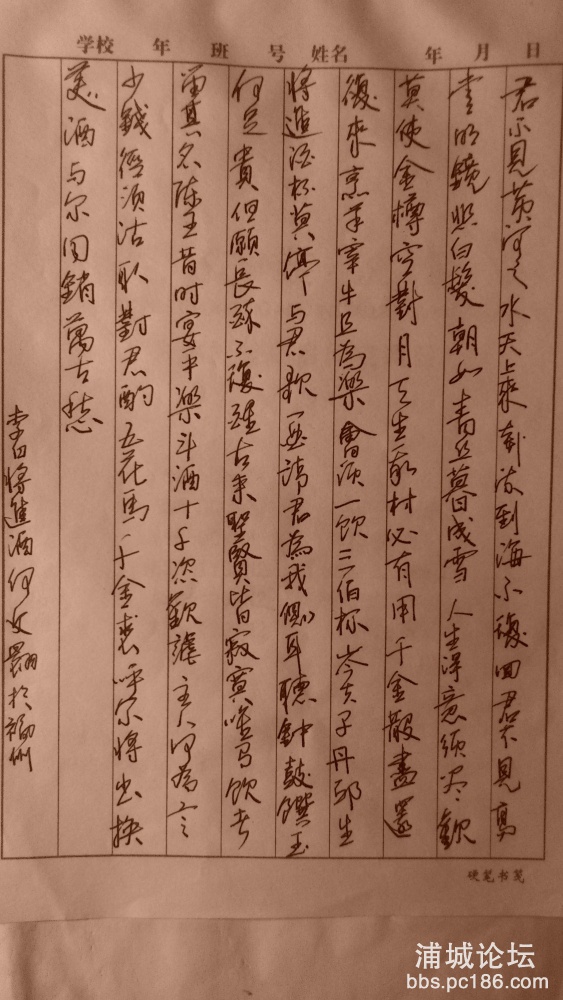 学校 年 班 号 姓名 年 月 日
君不見黄河之水天上来奔流到海不復回君不見高
堂明鏡悲白髮朝如青丝暮成雪人生得意须尽歓
莫使金樽空對月天生我材必有用千金散盡還
復来烹羊宰牛且為樂會须一飲三佰杯岑夫子丹邱生
将進酒杯莫停与君歌一曲请君為我側耳聽鈡鼓饌玉
何足貴但願長醉不復醒古来聖賢皆寂寞唯有飲者
留其名陈王昔时宴平樂斗酒十千恣歓謔主人何為言
少錢徑须沽取對君酌五花馬千金裘呼儿将出换
美酒与尔同銷萬古愁
李白将進酒何文 於福州
硬笔书笺
浦城论坛
bbs.pc186.com